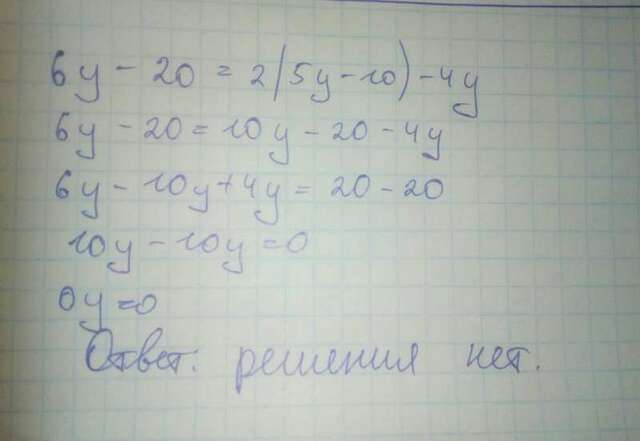 6y - 20 = 2(5y - 10) - 4y
6y - 20 = 10y - 20 - 4y
6y - 10y + 4y = 20 - 20
10y - 10y = 0
0y = 0
Ответ: решения нет.